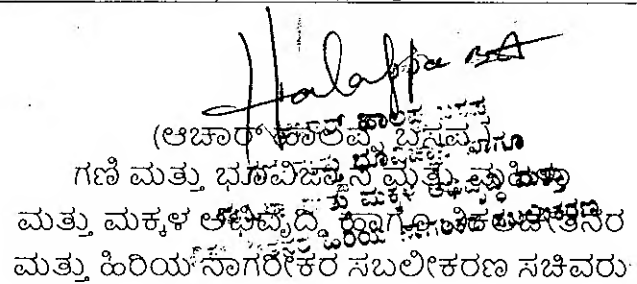 Halappa BA
(ಆಚಾರ್ ಹಾಲಪ್ಪ ಬಸಪ್ಪ)
ಗಣಿ ಮತ್ತು ಭೂವಿಜ್ಞಾನ ಮತ್ತು ಮಹಿಳಾ
ಮತ್ತು ಮಕ್ಕಳ ಅಭಿವೃದ್ಧಿ ಹಾಗೂ ವಿಕಲಚೇತನರ
ಮತ್ತು ಹಿರಿಯ ನಾಗರೀಕರ ಸಬಲೀಕರಣ ಸಚಿವರು